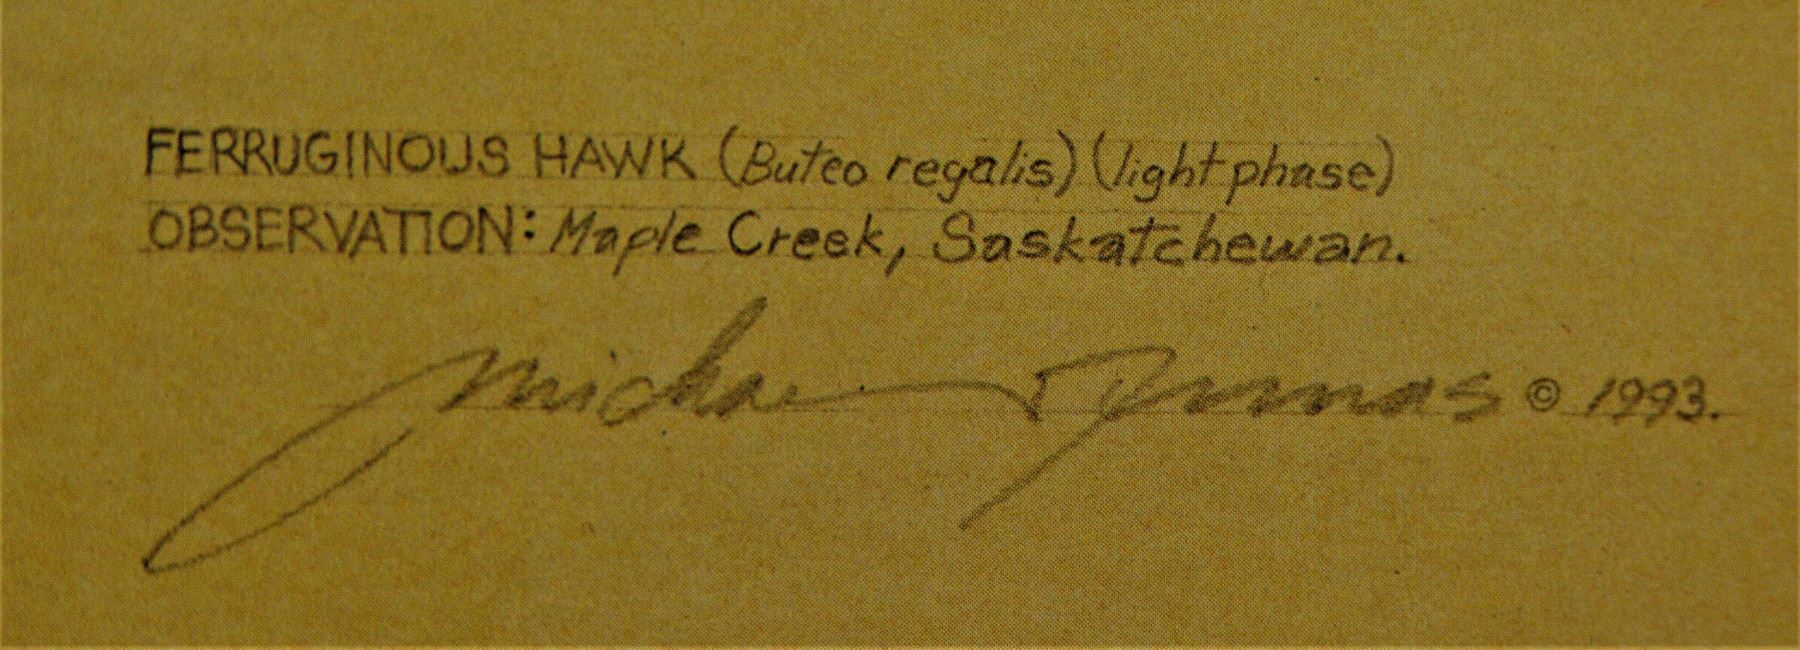 FERRUGINOUS HAWK (Buteo regalis) (light phase)
OBSERVATION: Maple Creek, Saskatchewan.
Michael Dumas © 1993.